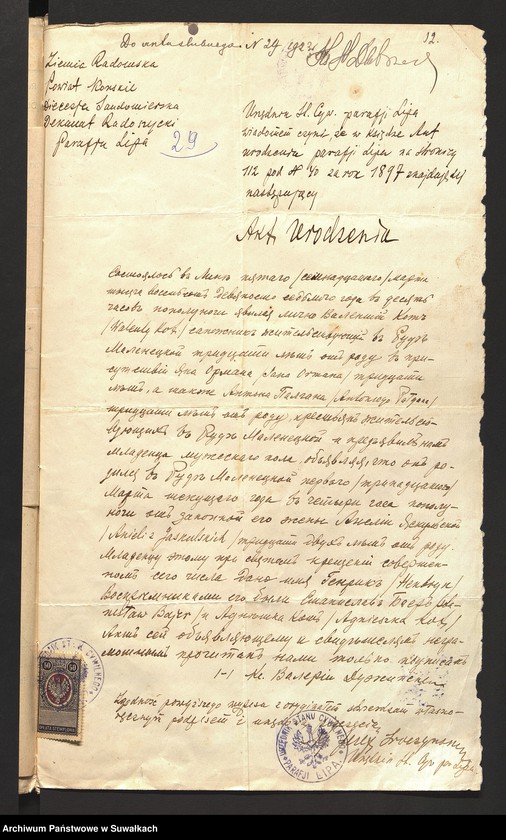 Do 
N 24 1924
12.
Ziemia Radomska
Powiat Konskie
Diecezja Sandomierska
Dekanat Radoszycki
Parafia Lipa
29
Urzędnik St. Cyw. parafji Lipa
wiadomem czyni, że w księdze Akt
urodzenia parafji Lipa na stronicy
112 pod N 70 za rok 1897 znajduje się
następujący
Akt Urodzenia
Состоялось въ Липѣ пятаго /семнадцатаго/ марта
тысяча восемьсотъ девяносто седьмого года въ десять
часовъ пополуночи явился лично Валентий Котъ
/Walenty Kot/ сапожникъ жительствующий въ Рудѣ
Маленецкой тридцати лѣтъ отъ роду въ при-
сутствии Яна Ормана /Jana Ormana/ тридцати
лѣтъ, а также Антона /Antoniego
тридцати лѣтъ отъ роду, крестьянъ жительст-
вующихъ въ Рудѣ Маленецкой и предъявилъ намъ
младенца мужескаго пола, объявляя, что онъ ро-
дился въ Рудѣ Маленецкой первого /тринадцатаго/
Марта текущего года въ четыре часа полу-
ночи отъ законной его жены Анели Яскульской
/Anieli z Jaskulskich/ тридцати двухъ лѣтъ отъ роду.
Младенцу этому при святомъ крещении совершен-
номъ сего числа дано имя Генрикъ /Henryk/
Восприемниками его были Станиславъ Баеръ /Sta-
nisław Bajer/ и Агнешка Котъ /Agnieszka Kot/
Актъ сей объявляющему и свидетелямъ негра-
мотнымъ прочитанъ нами только подписанъ
/-/ Кс. Валерий
Zgodność powyższego wypisu z oryginałem stwierdzam własno-
ręcznym podpisem i
Urzędnik St. Cyw. par. Lipa.
URZĘDNIK STANU CYWILNEGO
PARAFJI LIPA
50 50
OPŁATA STEMPLOWA
Archiwum Państwowe w Suwałkach